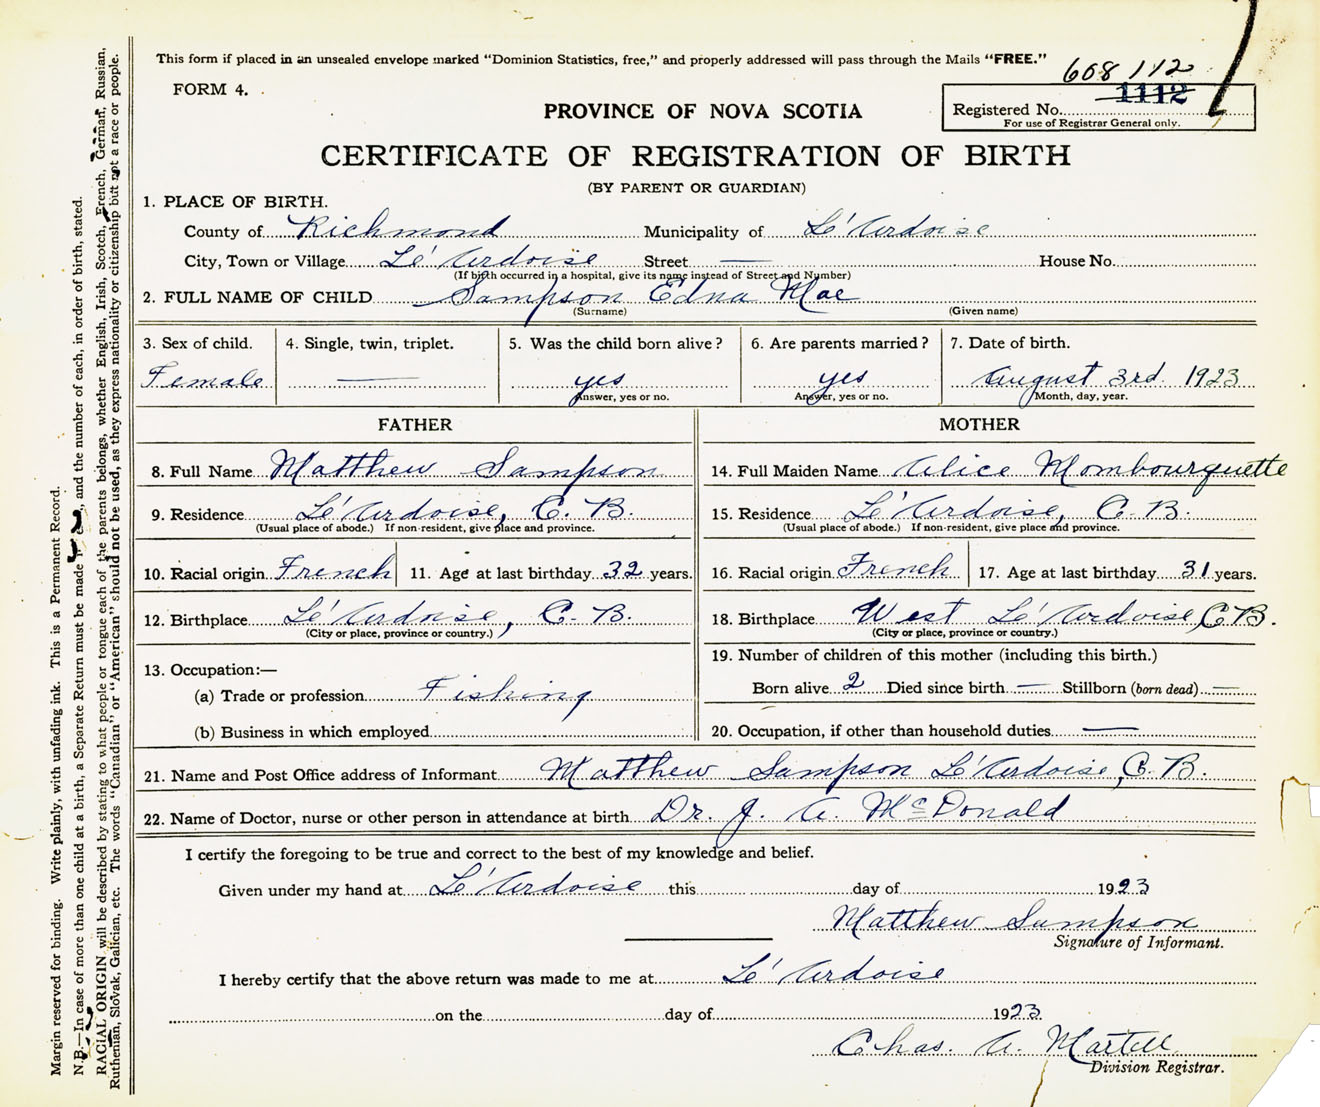 This form if placed in an unsealed envelope marked "Dominion Statistics, free," and properly addressed will pass through the Mails "FREE."
608 112
FORM 4.
1112
PROVINCE OF NOVA SCOTIA
Registered No.
For use of Registrar General only.
CERTIFICATE OF REGISTRATION OF BIRTH
(BY PARENT OR GUARDIAN)
1. PLACE OF BIRTH.
County of Richmond Municipality of Le'Ardoise
City, Town or Village Le'Ardoise Street — House No.
(If birth occurred in a hospital, give its name instead of Street and Number)
2. FULL NAME OF CHILD Sampson Edna Mae
(Surname) (Given name)
3. Sex of child. 4. Single, twin, triplet. 5. Was the child born alive? 6. Are parents married? 7. Date of birth.
Female — yes yes August 3rd. 1923
Answer, yes or no. Answer, yes or no. Month, day, year.
FATHER MOTHER
8. Full Name Matthew Sampson 14. Full Maiden Name Alice Mombourquette
9. Residence Le'Ardoise, C. B. 15. Residence Le'Ardoise, C. B.
(Usual place of abode.) If non-resident, give place and province. (Usual place of abode.) If non-resident, give place and province.
10. Racial origin French 11. Age at last birthday 32 years. 16. Racial origin French 17. Age at last birthday 31 years.
12. Birthplace Le'Ardoise, C. B. 18. Birthplace West Le'Ardoise, C.B.
(City or place, province or country.) (City or place, province or country.)
19. Number of children of this mother (including this birth.)
13. Occupation:—
(a) Trade or profession Fishing Born alive 2 Died since birth — Stillborn (born dead) —
(b) Business in which employed 20. Occupation, if other than household duties —
21. Name and Post Office address of Informant Matthew Sampson Le'Ardoise, C. B.
22. Name of Doctor, nurse or other person in attendance at birth Dr. J. A. McDonald
I certify the foregoing to be true and correct to the best of my knowledge and belief.
Given under my hand at Le'Ardoise this day of 1923
Matthew Sampson
Signature of Informant.
I hereby certify that the above return was made to me at Le'Ardoise
on the day of 1923.
Chas. A. Martell
Division Registrar.
Margin reserved for binding. Write plainly, with unfading ink. This is a Permanent Record.
N.B.—In case of more than one child at a birth, a Separate Return must be made and the number of each, in order of birth, stated.
RACIAL ORIGIN will be described by stating to what people or tongue each of the parents belongs, whether English, Irish, Scotch, French, German, Russian,
Ruthenian, Slovak, Galician, etc. The words "Canadian" or "American" should not be used, as they express nationality or citizenship but not a race or people.